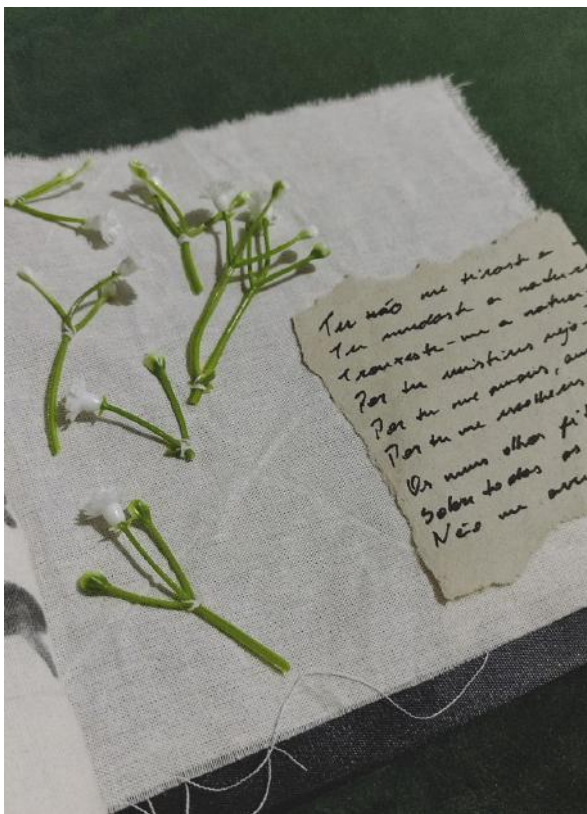 Tu não me tiraste a
Tu mudaste a natu
trouxeste-me a natu
Por tu existires vejo
Por tu me amares, am
Por tu me escolher
Os meus olhos fi
Sobre todas as
Não me arre